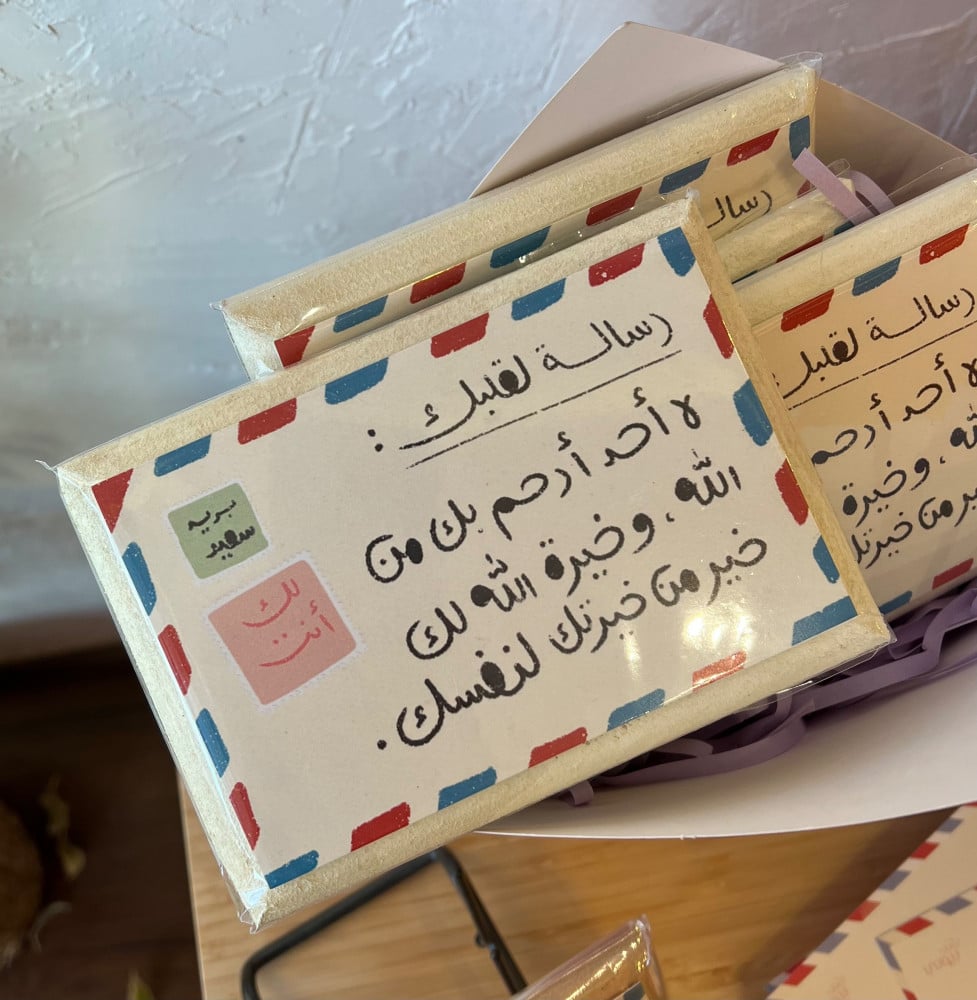 رسالة لقلبك :
لا أحد أرحم بك من
الله ، وخيرة الله لك
خير من خيرتك لنفسك .
بريد
سفير
لك
أنت
رسالة لقلبك :
لا أحد أرحم
الله ، وخيرة
خير من خيرتك
رسالة